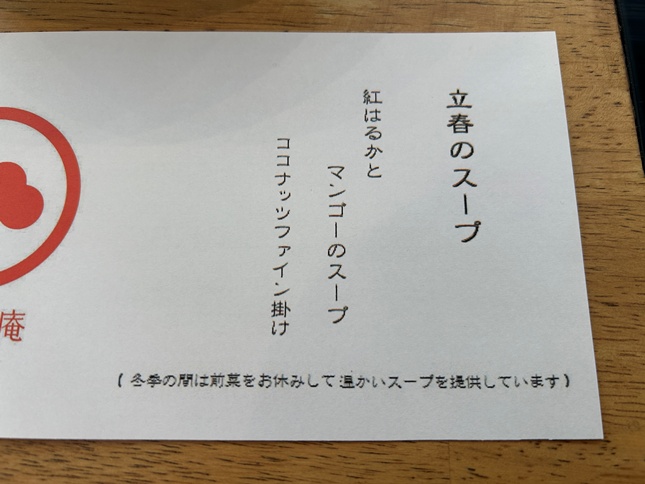 立春のスープ
紅はるかと
マンゴーのスープ
ココナッツファイン掛け
(冬季の間は前菜をお休みして温かいスープを提供しています)
庵